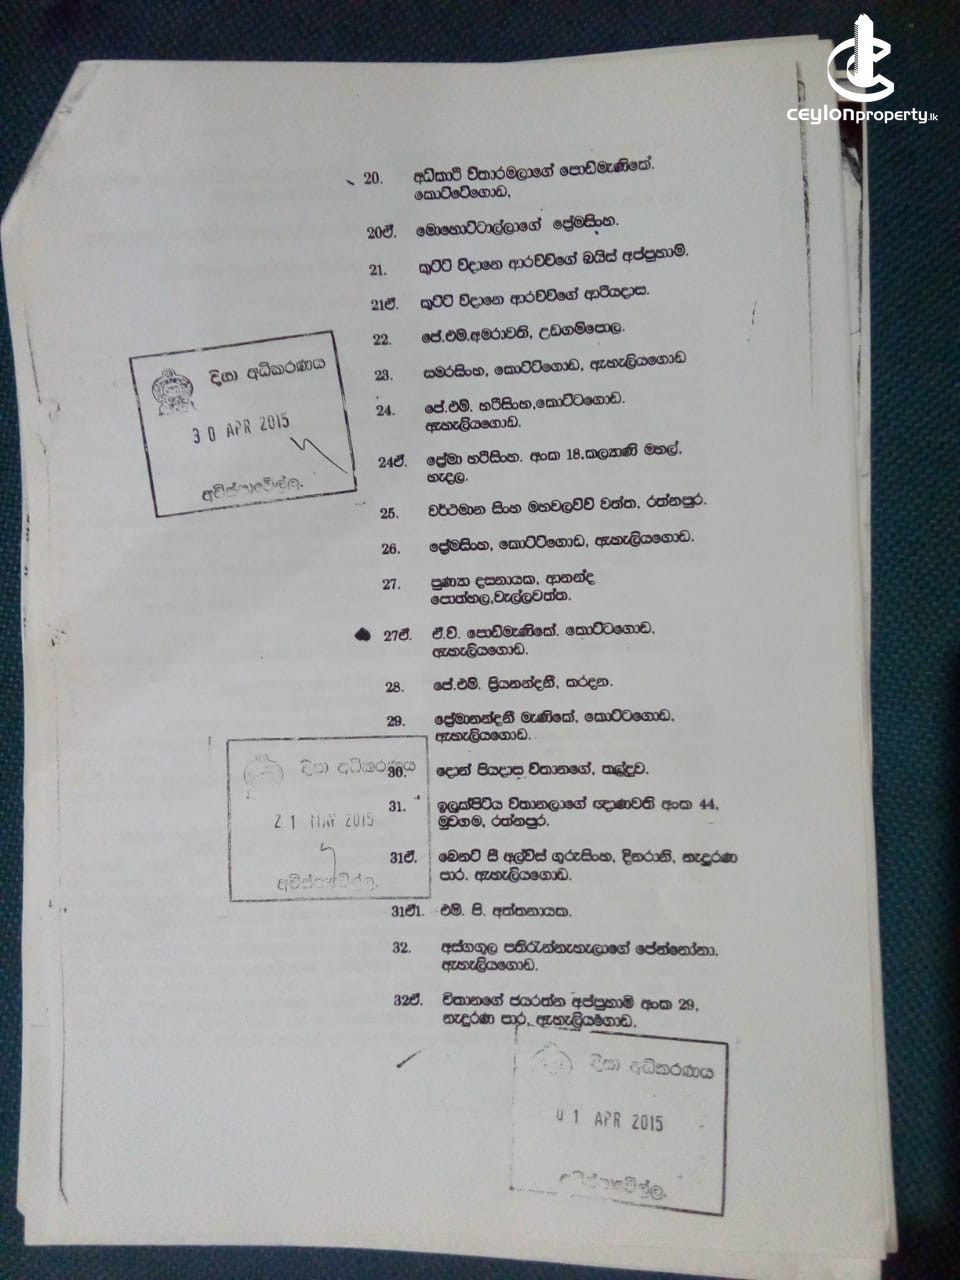 ceylonproperty.lk
20. අධිකාරී විතාරමලාගේ පොඩිමැණිකේ.
කොට්ටේගොඩ,
20ඒ. මොහොට්ටාල්ලාගේ ප්‍රේමසිංහ.
21. කුට්ටි විදානෙ ආරච්චිගේ බයිස් අප්පුහාමි.
21ඒ. කුට්ටි විදානෙ ආරච්චිගේ ආරියදාස.
22. ජේ.එම්.අමරාවති, උඩගම්පොල.
23. සමරසිංහ, කොට්ටිගොඩ, ඇහැලියගොඩ
24. ජේ.එම්. හරිසිංහ,කොට්ටගොඩ.
ඇහැලියගොඩ.
24ඒ. ප්‍රේමා හරිසිංහ. අංක 18,කල්‍යාණි මහල්,
හැදල.
25. වර්ථමාන සිංහ මහවලව්ව වත්ත, රත්නපුර.
26. ප්‍රේමසිංහ, කොට්ටිගොඩ, ඇහැලියගොඩ.
27. පුණ්‍යා දසනායක, ආනන්ද
පොත්හල,වැල්ලවත්ත.
27ඒ. ඒ.වී. පොඩිමැණිකේ. කොට්ටගොඩ,
ඇහැලියගොඩ.
28. ජේ.එම්. ප්‍රියනන්දනී, කරදන.
29. ප්‍රේමානන්දනී මැණිකේ, කොට්ටගොඩ,
ඇහැලියගොඩ.
30. දොන් පියදාස විතානගේ, තල්දුව.
31. ඉලුක්පිටිය විතානලාගේ ඥාණවති අංක 44,
මුවගම, රත්නපුර.
31ඒ. බෙනට් සී අල්විස් ගුරුසිංහ, දිනරානි, නැදුරණ
පාර, ඇහැලියගොඩ.
31ඒ1. එම්. පි. අත්තනායක.
32. අස්ගගුල පතිරැන්නැහැලාගේ ජේන්නෝනා,
ඇහැලියගොඩ.
32ඒ. විතානගේ ජයරත්න අප්පුහාමි අංක 29,
නැදුරණ පාර, ඇහැලියගොඩ.
දිසා අධිකරණය
30 APR 2015
අවිස්සාවේල්ල.
දිසා අධිකරණය
21 MAY 2015
අවිස්සාවේල්ල.
දිසා අධිකරණය
01 APR 2015
අවිස්සාවේල්ල.